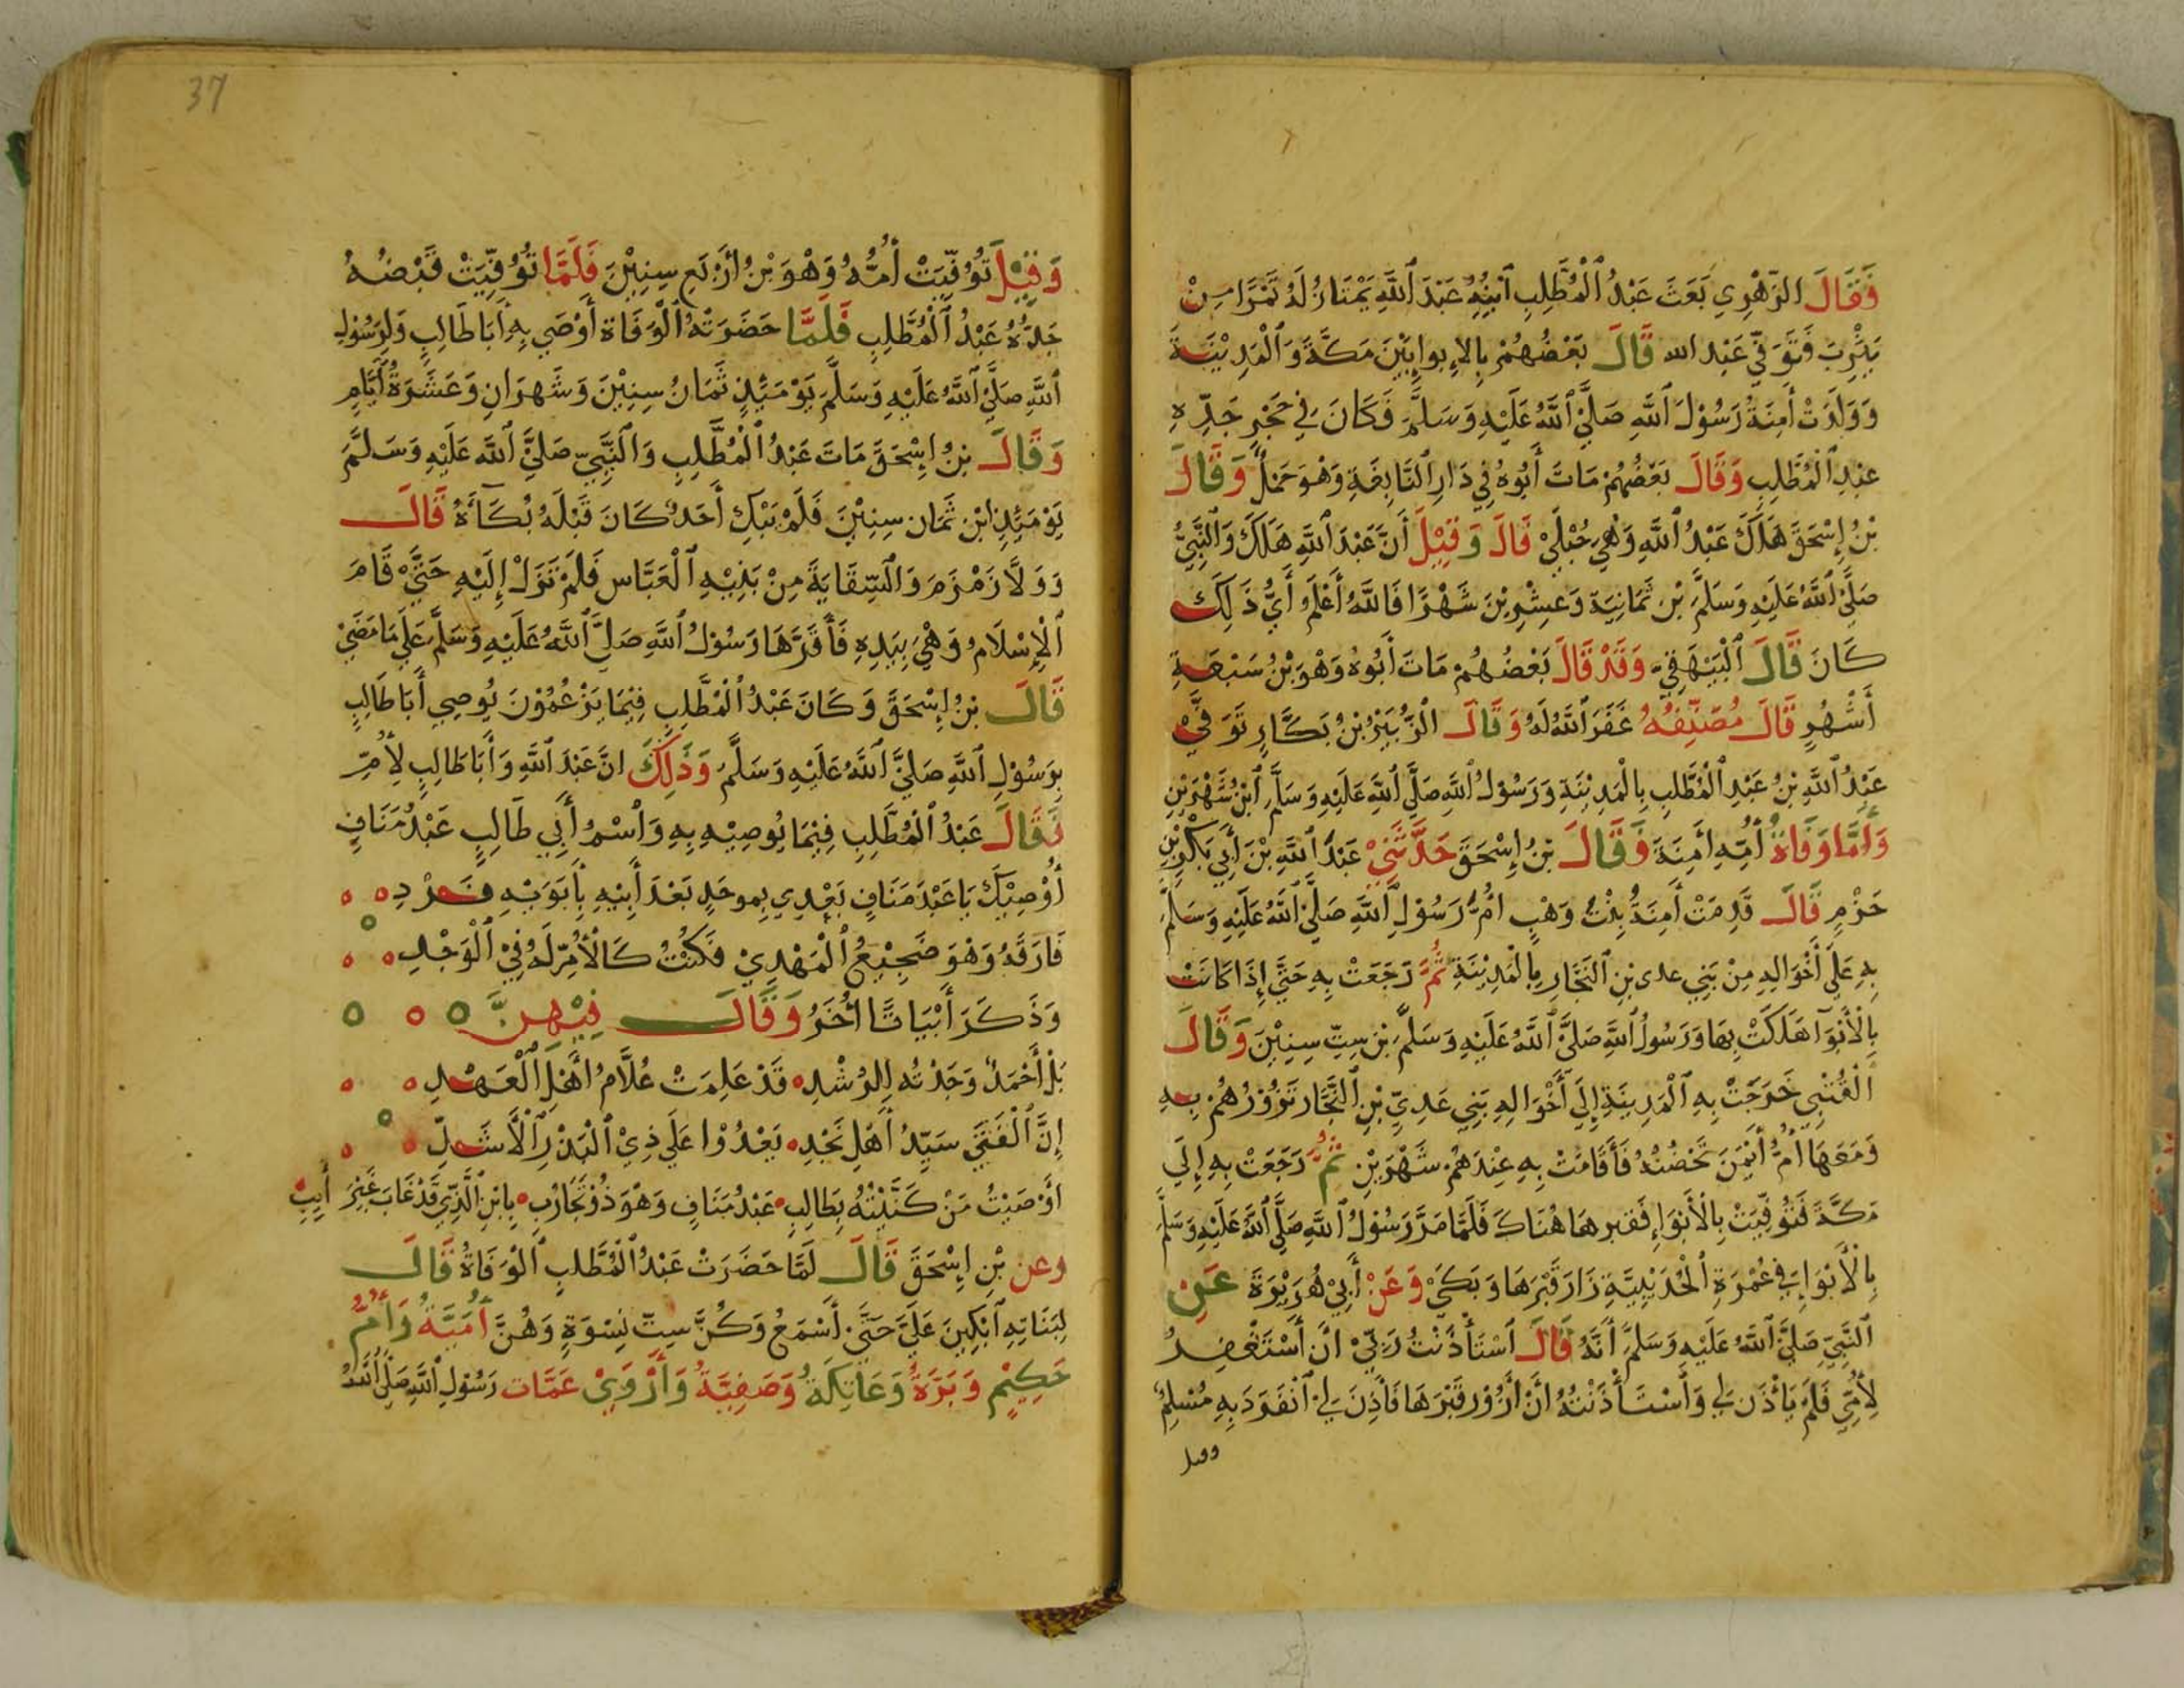 فَقَالَ الزّهْرِي بَعَثَ عَبْدُ ٱلْمُطَّلِبِ ٱبْنَهُ عَبْدَ ٱللَّهِ يَمْتَارُ لَهُ تَمْرًا مِنْ
يَثْرِبَ فَتَوَفّيَ عَبْد الله قَالَ بَعْضُهُمْ بِالإبواءِ بَيْنَ مَكَّةَ وَٱلْمَدِيْنَةِ
وَوَلَدَتْ أَمِنَةُ رَسُوْلَ ٱللَّهِ صَلَّيْ ٱللَّهُ عَلَيْهِ وَسَلَّمَ فَكَانَ فِي حَجْرِ جَدِّهِ
عَبْدِ ٱلْمُطَّلِبِ وَقَالَ بَعْضُهُمْ مَاتَ أَبُوهُ فِي دَارِ ٱلنَّابِغَةِ وَهْوَ حَمْلٌ وَقَالَ
بْنُ إِسْحَقَ هَلَكَ عَبْدُ ٱللَّهِ وَهْيَ حُبْلَيْ قَالَ وَقِيْلَ أَنَّ عَبْدَ ٱللَّهِ هَلَكَ وَٱلنَّبِيُّ
صَلَّيْ ٱللَّهُ عَلَيْهِ وَسَلَّمَ بْنِ ثَمَانِيَةَ وَعِشْرِيْنَ شَهْرًا فَاللَّهُ أَعْلَمُ أَيُّ ذَلِكَ
كَانَ قَالَ ٱلْبَيْهَقِيّ وَقَدْ قَالَ بَعْضُهُمْ مَاتَ أَبُوهُ وَهْوَ بْنُ سَبْعَةِ
أَشْهُرٍ قَالَ مُصَنِّفُهُ غَفَرَ ٱللَّهُ لَهُ وَقَالَ الزُّبَيْرُ بْنُ بَكَّارٍ تَوَفَّيْ
عَبْدُ ٱللَّهِ بْنُ عَبْدِ ٱلْمُطَّلِبِ بِالْمَدِيْنَةِ وَرَسُوْلُ ٱللَّهِ صَلَّيْ ٱللَّهُ عَلَيْهِ وَسَلَّمَ ٱبْنُ شَهْرَيْنِ
وَأَمَّا وَفَاةُ أُمِّهِ أَمِنَةَ فَقَالَ بْنُ إِسْحَقَ حَدَّثَنِيْ عَبْدُ ٱللَّهِ بْنَ أَبِي بَكْرِ بْنِ
حَزْمٍ قَالَ قَدِمَتْ أَمِنَةُ بِنْتُ وَهْبٍ امُّ رَسُوْلِ ٱللَّهِ صَلَّيْ ٱللَّهُ عَلَيْهِ وَسَلَّمَ
بِهِ عَلَي أَخْوَالِهِ مِنْ بَنِي عدى بْنِ ٱلنَّجَّارِ بِالْمَدِيْنَةِ ثُمَّ رَجَعَتْ بِهِ حَتَّي إِذَا كَانَتْ
بِالْأَبْوَآ هَلَكَتْ بِهَا وَرَسُولُ ٱللَّهِ صَلَّيْ ٱللَّهُ عَلَيْهِ وَسَلَّمَ بْنَ سِتِّ سِنِيْنَ وَقَالَ
الْقُتْبِي خَرَجَتْ بِهِ ٱلْمَدِيْنَةِ إِلَي أَخْوَالِهِ بَنِي عَدِيِّ بْنِ ٱلنَّجَّارِ تَزُوْرُهُمْ بِهِ
وَمَعَهَا أُمُّ أَيْمَنَ تَحْضُنُهُ فَأَقَامَتْ بِهِ عِنْدَهُمْ شَهْرَيْنِ ثُمَّ رَجَعَتْ بِهِ إِلَي
مَكَّةَ فَتُوُفِّيَتْ بِالْأَبْوَاءِ فَقبرهَا هُنَاكَ فَلَمَّا مَرَّ رَسُوْلُ ٱللَّهِ صَلَّيْ ٱللَّهُ عَلَيْهِ وَسَلَّمَ
بِالْأَبْوَاءِ فِي عُمْرَةِ ٱلْحُدَيْبِيَّةِ زَارَ قَبْرَهَا وَبَكَيْ وَعَنْ أَبِيْ هُرَيْرَةَ عَنِ
ٱلنَّبِيّ صَلَّيْ ٱللَّهُ عَلَيْهِ وَسَلَّمَ أَنَّهُ قَالَ ٱسْتَأْذَنْتُ رَبِّيْ أَنْ أَسْتَغْفِرُ
لِأُمِّي فَلَمْ يَأْذَنْ لِي وَٱسْتَأْذَنْتُهُ أَنْ أَزُوْرَ قَبْرَهَا فَأَذِنَ لِيْ ٱنْفَرَدَ بِهِ مُسْلِمٌ
وقيل
37
وَقِيْلَ تُوُفِّيَتْ أُمُّهُ وَهْوَ بْنُ أَرْبَعِ سِنِيْنَ فَلَمَّا تُوُفِّيَتْ قَبَضَهُ
جَدُّهُ عَبْدُ ٱلْمُطَّلِبِ فَلَمَّا حَضَرَتْهُ ٱلْوَفَاة أَوْصَي بِهِ أَبَا طَالِبٍ وَلِرَسُوْلِ
ٱللَّهِ صَلَّيْ ٱللَّهُ عَلَيْهِ وَسَلَّمَ يَوْمَئِذٍ ثَمَانُ سِنِيْنَ وَشَهرَانِ وَعَشَرَةُ أَيَّامٍ
وَقَالَ بْنُ إِسْحَقَ مَاتَ عَبْدُ ٱلْمُطَّلِبِ وَالنَّبِيّ صَلَّيْ ٱللَّهُ عَلَيْهِ وَسَلَّمَ
يَوْمَئِذٍ ابْن ثَمَان سِنِيْنَ فَلَمْ يَبْكِ أَحَدٌ كَانَ قَبْلَهُ بُكَآءَهُ قَالَ
وَوَلَّا زَمْزَمَ وَالسِّقَايَةَ مِنْ بَنِيْهِ ٱلْعَبَّاس فَلَمْ تَزَلْ إِلَيْهِ حَتَّيْ قَامَ
ٱلْإِسْلَامُ وَهْيَ بِيَدِهِ فَأَقَرَّهَا رَسُوْلُ ٱللَّهِ صَلَّي ٱللَّهُ عَلَيْهِ وَسَلَّمَ عَلَي مَا مَضَيْ
قَالَ بْنُ إِسْحَقَ وَكَانَ عَبْدُ ٱلْمُطَّلِبِ فِيْمَا يَزْعُمُوْنَ يُوصِي أَبَا طَالِبٍ
بِرَسُوْلِ ٱللَّهِ صَلَّيْ ٱللَّهُ عَلَيْهِ وَسَلَّمَ وَذَلِكَ انَّ عَبْدَ ٱللَّهِ وَأَبَا طَالِبٍ لِأُمٍّ
فَقَالَ عَبْدُ ٱلْمُطَّلِبِ فِيْمَا يُوصِيْهِ بِهِ وَٱسْمُ أَبِي طَالِبٍ عَبْدُ مَنَافٍ
أُوْصِيْكَ يَا عَبْدَ مَنَافٍ بَعْدِي بِموحَدٍ بَعْدَ أَبِيْهِ فَرْدِ
فَارَقَهُ وَهْوَ ضَجِيْعُ ٱلْمَهْدِيْ فَكُنْتُ كَالْأُمِّ لَهُ فِيْ ٱلْوَجْدِ
وَذَكَرَ أَبْيَاتًا أُخَرُ وَقَالَ فِيْهِنَّ
بَلْ أَحْمَدٌ وَجَدْتُه لِلرُشْدِ قَدْ عَلِمَتْ عُلَّامُ أَهْلِ الْعَهْدِ
إِنَّ ٱلْفَتَيَ سَيِّدُ أَهْلِ نَجْدِ يَعْدُوْا عَلَي ذِيْ ٱلْبَدْرِ ٱلْأَشَدِّ
أَوْصَيْتُ مَنْ كَنَّيْتُهُ بِطَالِبِ عَبْدُ مَنَافٍ وَهْوَ ذُوْ تَجَارُبِ بِابْنِ ٱلَّذِي قَدْ غَابَ غَيْرَ أَيِبِ
وعن بْنِ إِسْحَقَ قَالَ لَمَّا حَضَرَتْ عَبْدُ ٱلْمُطَّلب ٱلْوَفَاةُ قَالَ
لِبَنَاتِهِ ٱبْكِيْنَ عَلَيَّ حَتَّيْ أَسْمَعُ وَكُنَّ سِتّ نِسْوَةٍ وَهُنَّ أُمَيَّةُ وَأُمُّ
حَكِيْمٍ وَبَرَّةُ وَعَاتِكَةُ وَصَفِيَّةُ وَأَرْوَيْ عَمَّات رَسُوْلِ ٱللَّهِ صَلَّيْ ٱللَّهُ